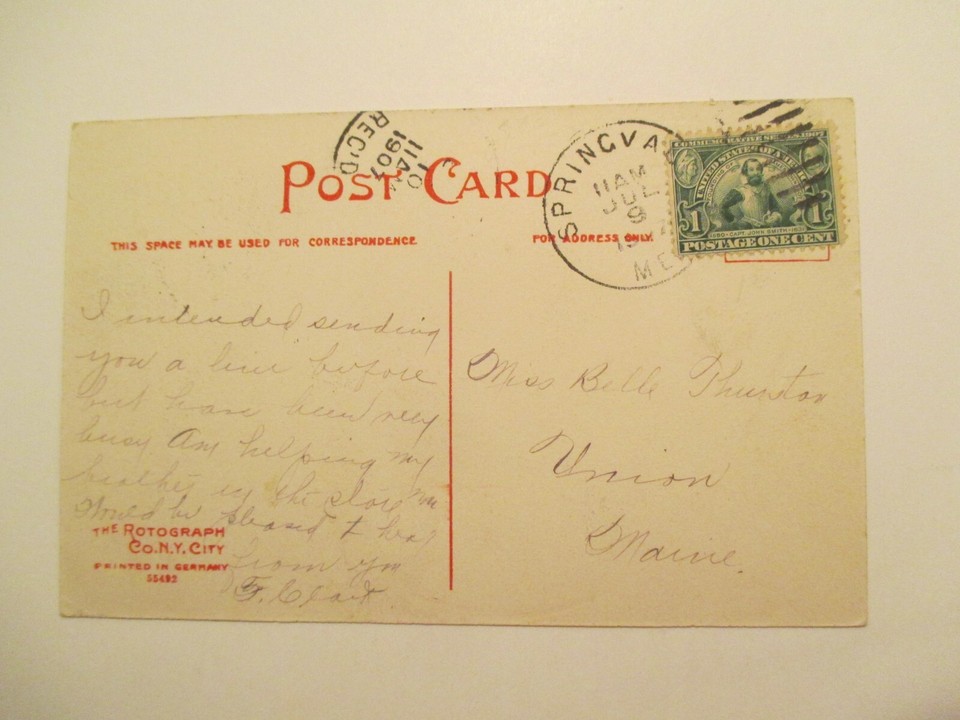 REC'D
10
11 AM
1907
POST CARD
SPRINGVA
11 AM
JUL
9
ME
COMMEMORATIVE SERIES 1907
UNITED STATES OF AMERICA
1 1
1580 · CAPT. JOHN SMITH · 1631
POSTAGE ONE CENT
THIS SPACE MAY BE USED FOR CORRESPONDENCE
FOR ADDRESS ONLY.
I intended sending
you a line before
but have been very
busy Am helping my
brother in the store
Would be pleased t hear
from you
F. Clark
Miss Belle Thurston
Union
Maine.
THE ROTOGRAPH
CO. N.Y. CITY
PRINTED IN GERMANY
55492